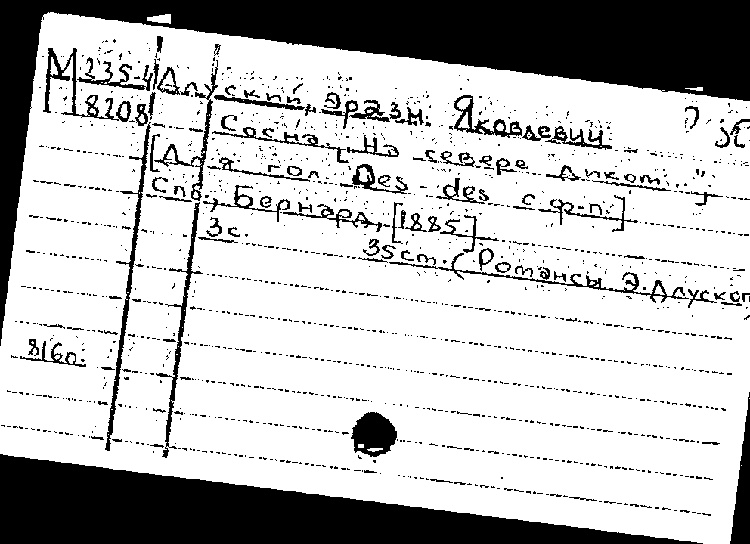 М 235-4 Длуский, Эразм. Яковлевич
8208 Сосна. ["На севере диком..."]
[Для гол. Des - des с ф-п.]
Спб., Бернард, [1885]
3с. 35ст. (Романсы Э. Длуског
816п.